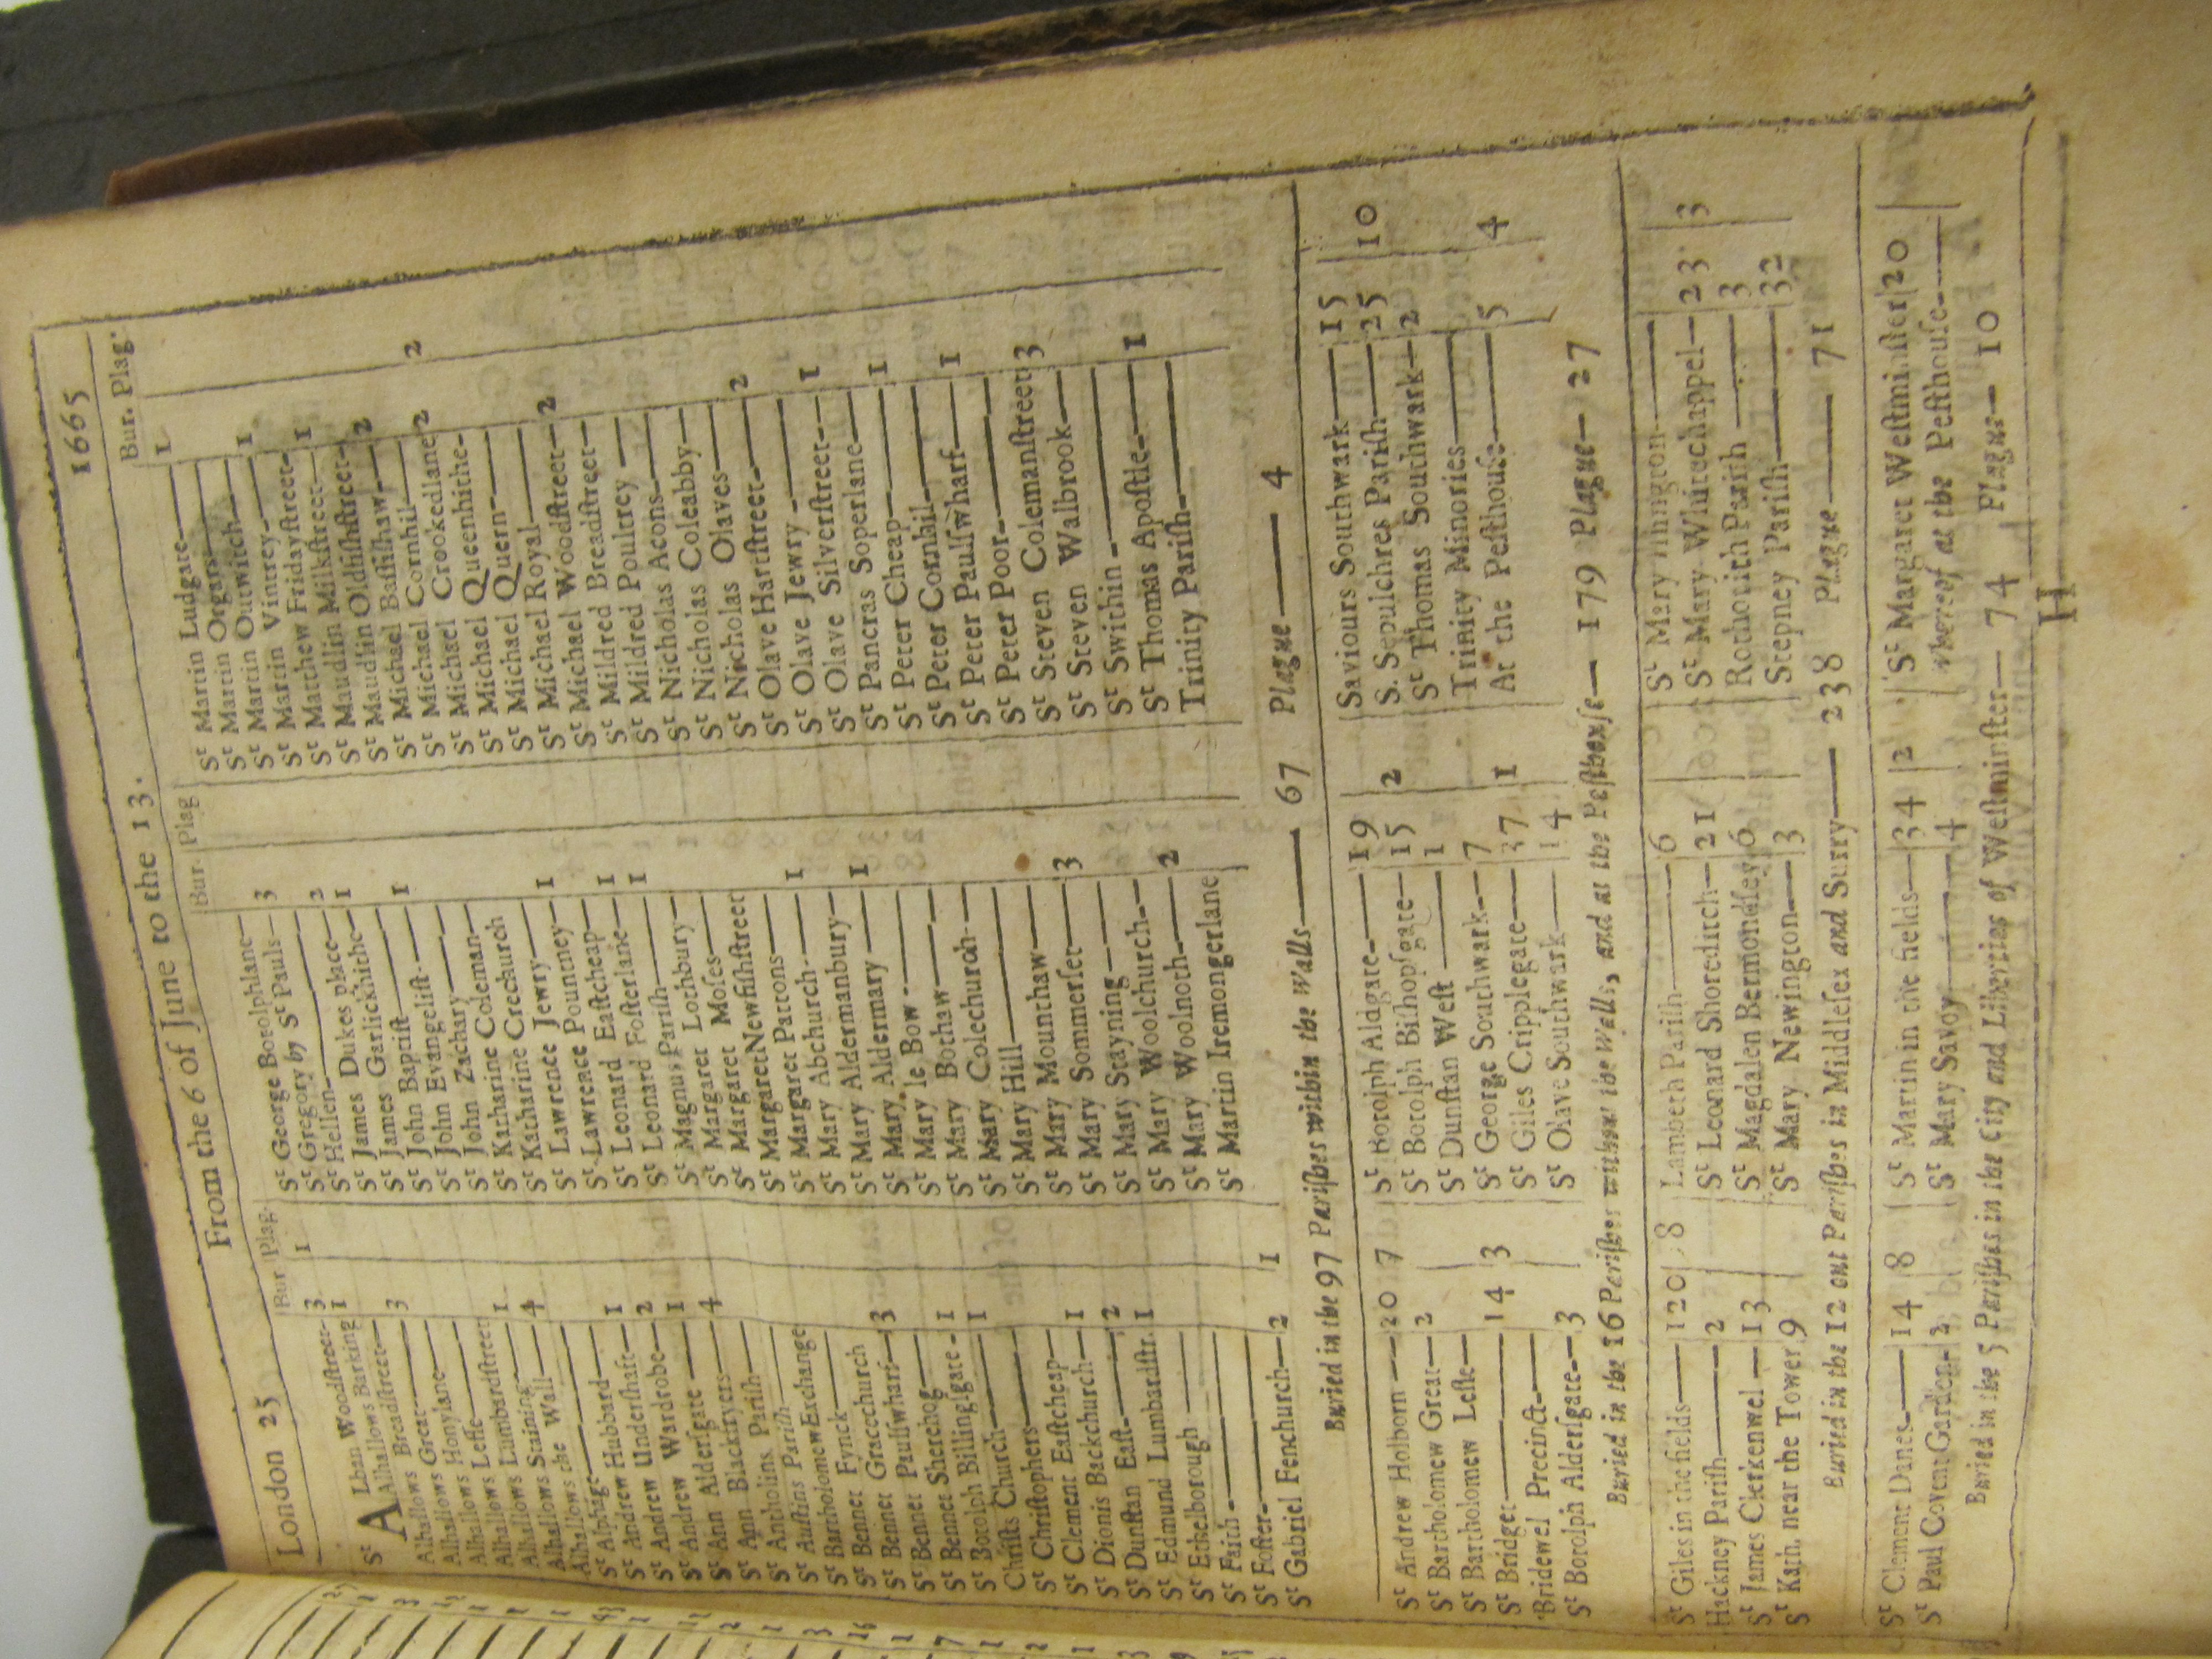 London 25 From the 6 of June to the 13. 1665
Bur Plag.
St ALban Woodſtreet- 3 1
Alhallows Barking 1
Alhallows Breadſtreet—
Alhallows Great— 3
Alhallows Honylane—
Alhallows Leſſe—
Alhallows Lumbardſtreet
Alhallows Staining— 1
Alhallows the Wall— 4
St Alphage—
St Andrew Hubbard—
St Andrew Underſhaft— 1
St Andrew Wardrobe— 2
St Ann Alderſgate — 1
St Ann Blackfryers— 4
St Antholins Pariſh—
St Auſtins Pariſh—
St Bartholomew Exchange
St Bennet Fynck—
St Bennet Gracechurch
St Bennet Paulſwharf— 3
St Bennet Sherehog—
St Botolph Billingſgate - 1
Chriſts Church— 1
St Chriſtophers—
St Clement Eaſtcheap—
St Dionis Backchurch— 1
St Dunſtan Eaſt— 2
St Edmund Lumbardſtr. 1
St Ethelborough —
St Faith -—
St Foſter-—
St Gabriel Fenchurch— 2 1
Bur. Plag
St George Botolphlane—
St Gregory by St Pauls— 3
St Hellen-—
St James Dukes place— 2
St James Garlickhithe— 1
St John Baptiſt—
St John Evangeliſt-— 1
St John Zachary—
St Katharine Coleman—
St Katharine Creechurch
St Lawrence Jewry—
St Lawrence Pountney— 1
St Leonard Eaſtcheap—
St Leonard Foſterlane— 1
St Magnus Pariſh— 1
St Margaret Lothbury—
St Margaret Moſes—
St Margaret Newfiſhſtreet
St Margaret Pattons—
St Mary Abchurch-— 1
St Mary Aldermanbury—
St Mary Aldermary — 1
St Mary le Bow -—
St Mary Bothaw—
St Mary Colechurch-—
St Mary Hill—
St Mary Mounthaw—
St Mary Sommerſet— 3
St Mary Stayning -—
St Mary Woolchurch-—
St Mary Woolnoth-— 2
St Martin Iremongerlane
Bur. Plag.
St Martin Ludgate— 1
St Martin Orgars—
St Martin Outwitch—
St Martin Vintrey-— 1
St Matthew Fridayſtreet-
St Maudlin Milkſtreet— 1
St Maudlin Oldfiſhſtreet-
St Michael Baſſiſhaw— 2
St Michael Cornhil—
St Michael Crookedlane 2 2
St Michael Queenhithe-
St Michael Quern-—
St Michael Royal—
St Michael Woodſtreet— 2
St Mildred Breadſtreet—
St Mildred Poultrey —
St Nicholas Acons—
St Nicholas Coleabby—
St Nicholas Olaves—
St Olave Hartſtreet-— 2
St Olave Jewry -—
St Olave Silverſtreet-— 1
St Pancras Soperlane—
St Peter Cheap-— 1
St Peter Cornhil-—
St Peter Paulſwharf— 1
St Peter Poor-—
St Steven Colemanſtreet 3
St Steven Walbrook—
St Swithin -—
St Thomas Apoſtle-— 1
Trinity Pariſh-—
Buried in the 97 Pariſhes within the Walls— 67 Plague— 4
St Andrew Holborn — 20 7
St Bartholomew Great— 2
St Bartholomew Leſſe—
St Bridget— 14 3
Bridewel Precinct-—
St Botolph Alderſgate-— 3
St Botolph Aldgate-— 19
St Botolph Biſhopſgate— 15 2
St Dunſtan Weſt — 1
St George Southwark-— 7
St Giles Cripplegate— 37 1
St Olave Southwark— 14
Saviours Southwark— 15
S. Sepulchres Pariſh— 25 10
St Thomas Southwark— 2
Trinity Minories—
At the Peſthouſe— 5 4
Buried in the 16 Pariſhes without the Walls, and at the Peſthouſe— 179 Plague— 27
St Giles in the fields— 120 68
Hackney Pariſh— 2
St James Clerkenwel — 13
St Kath. near the Tower 9
Lambeth Pariſh— 6
St Leonard Shoreditch— 21
St Magdalen Bermondſey 6
St Mary Newington— 3
St Mary Iſlington—
St Mary Whitechappel— 23 3
Rothorith Pariſh — 3
Stepney Pariſh— 32
Buried in the 12 out Pariſhes in Middleſex and Surry— 238 Plague— 71
St Clement Danes-— 14 8
St Paul Covent Garden- 2
St Martin in the fields— 34 2
St Mary Savoy— 4
St Margaret Weſtminſter 20
whereof at the Peſthouſe-—
Buried in the 5 Pariſhes in the City and Liberties of Weſtminſter— 74 Plague— 10
H